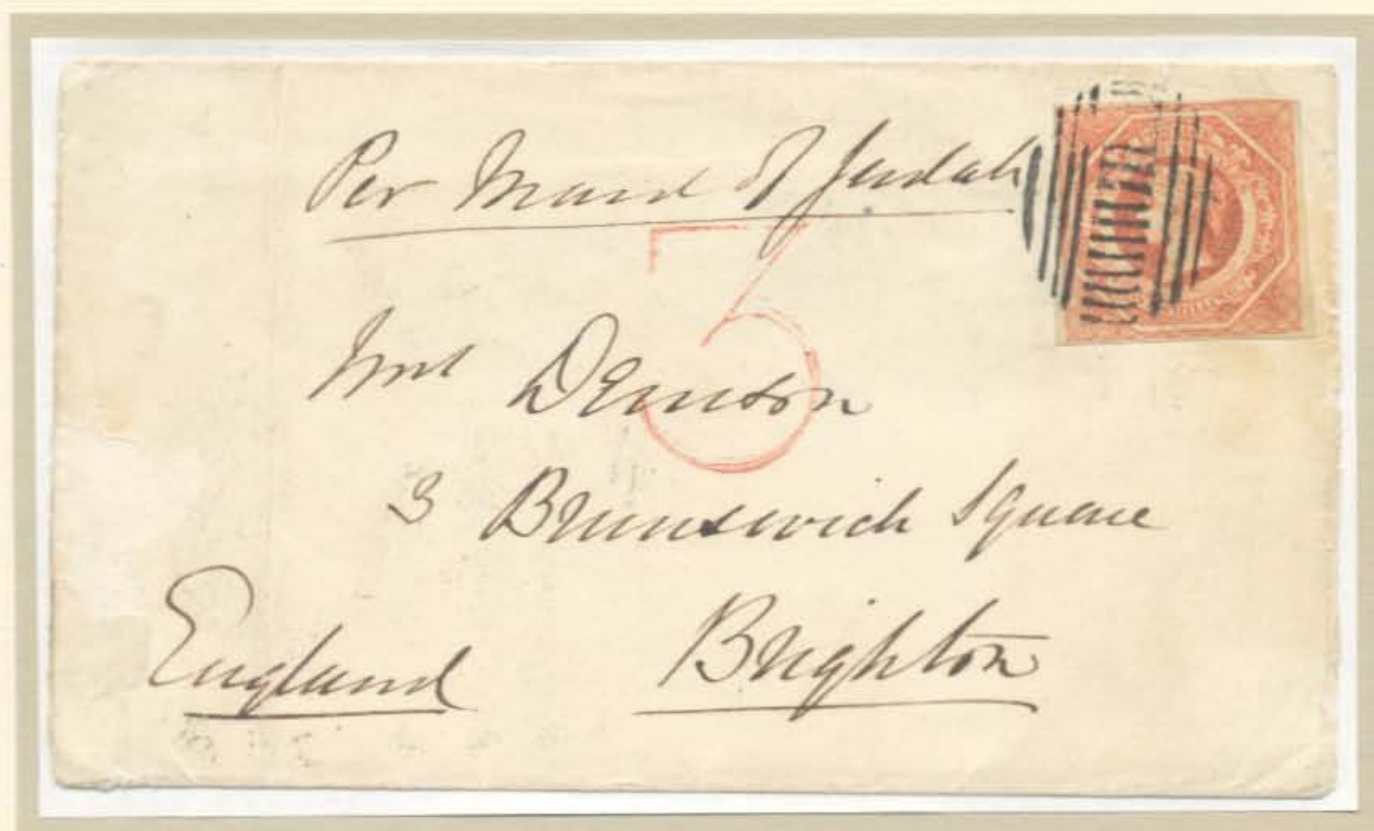 Per Maid of Judah
3
Mrs Denison
3 Brunswick Square
Brighton
England